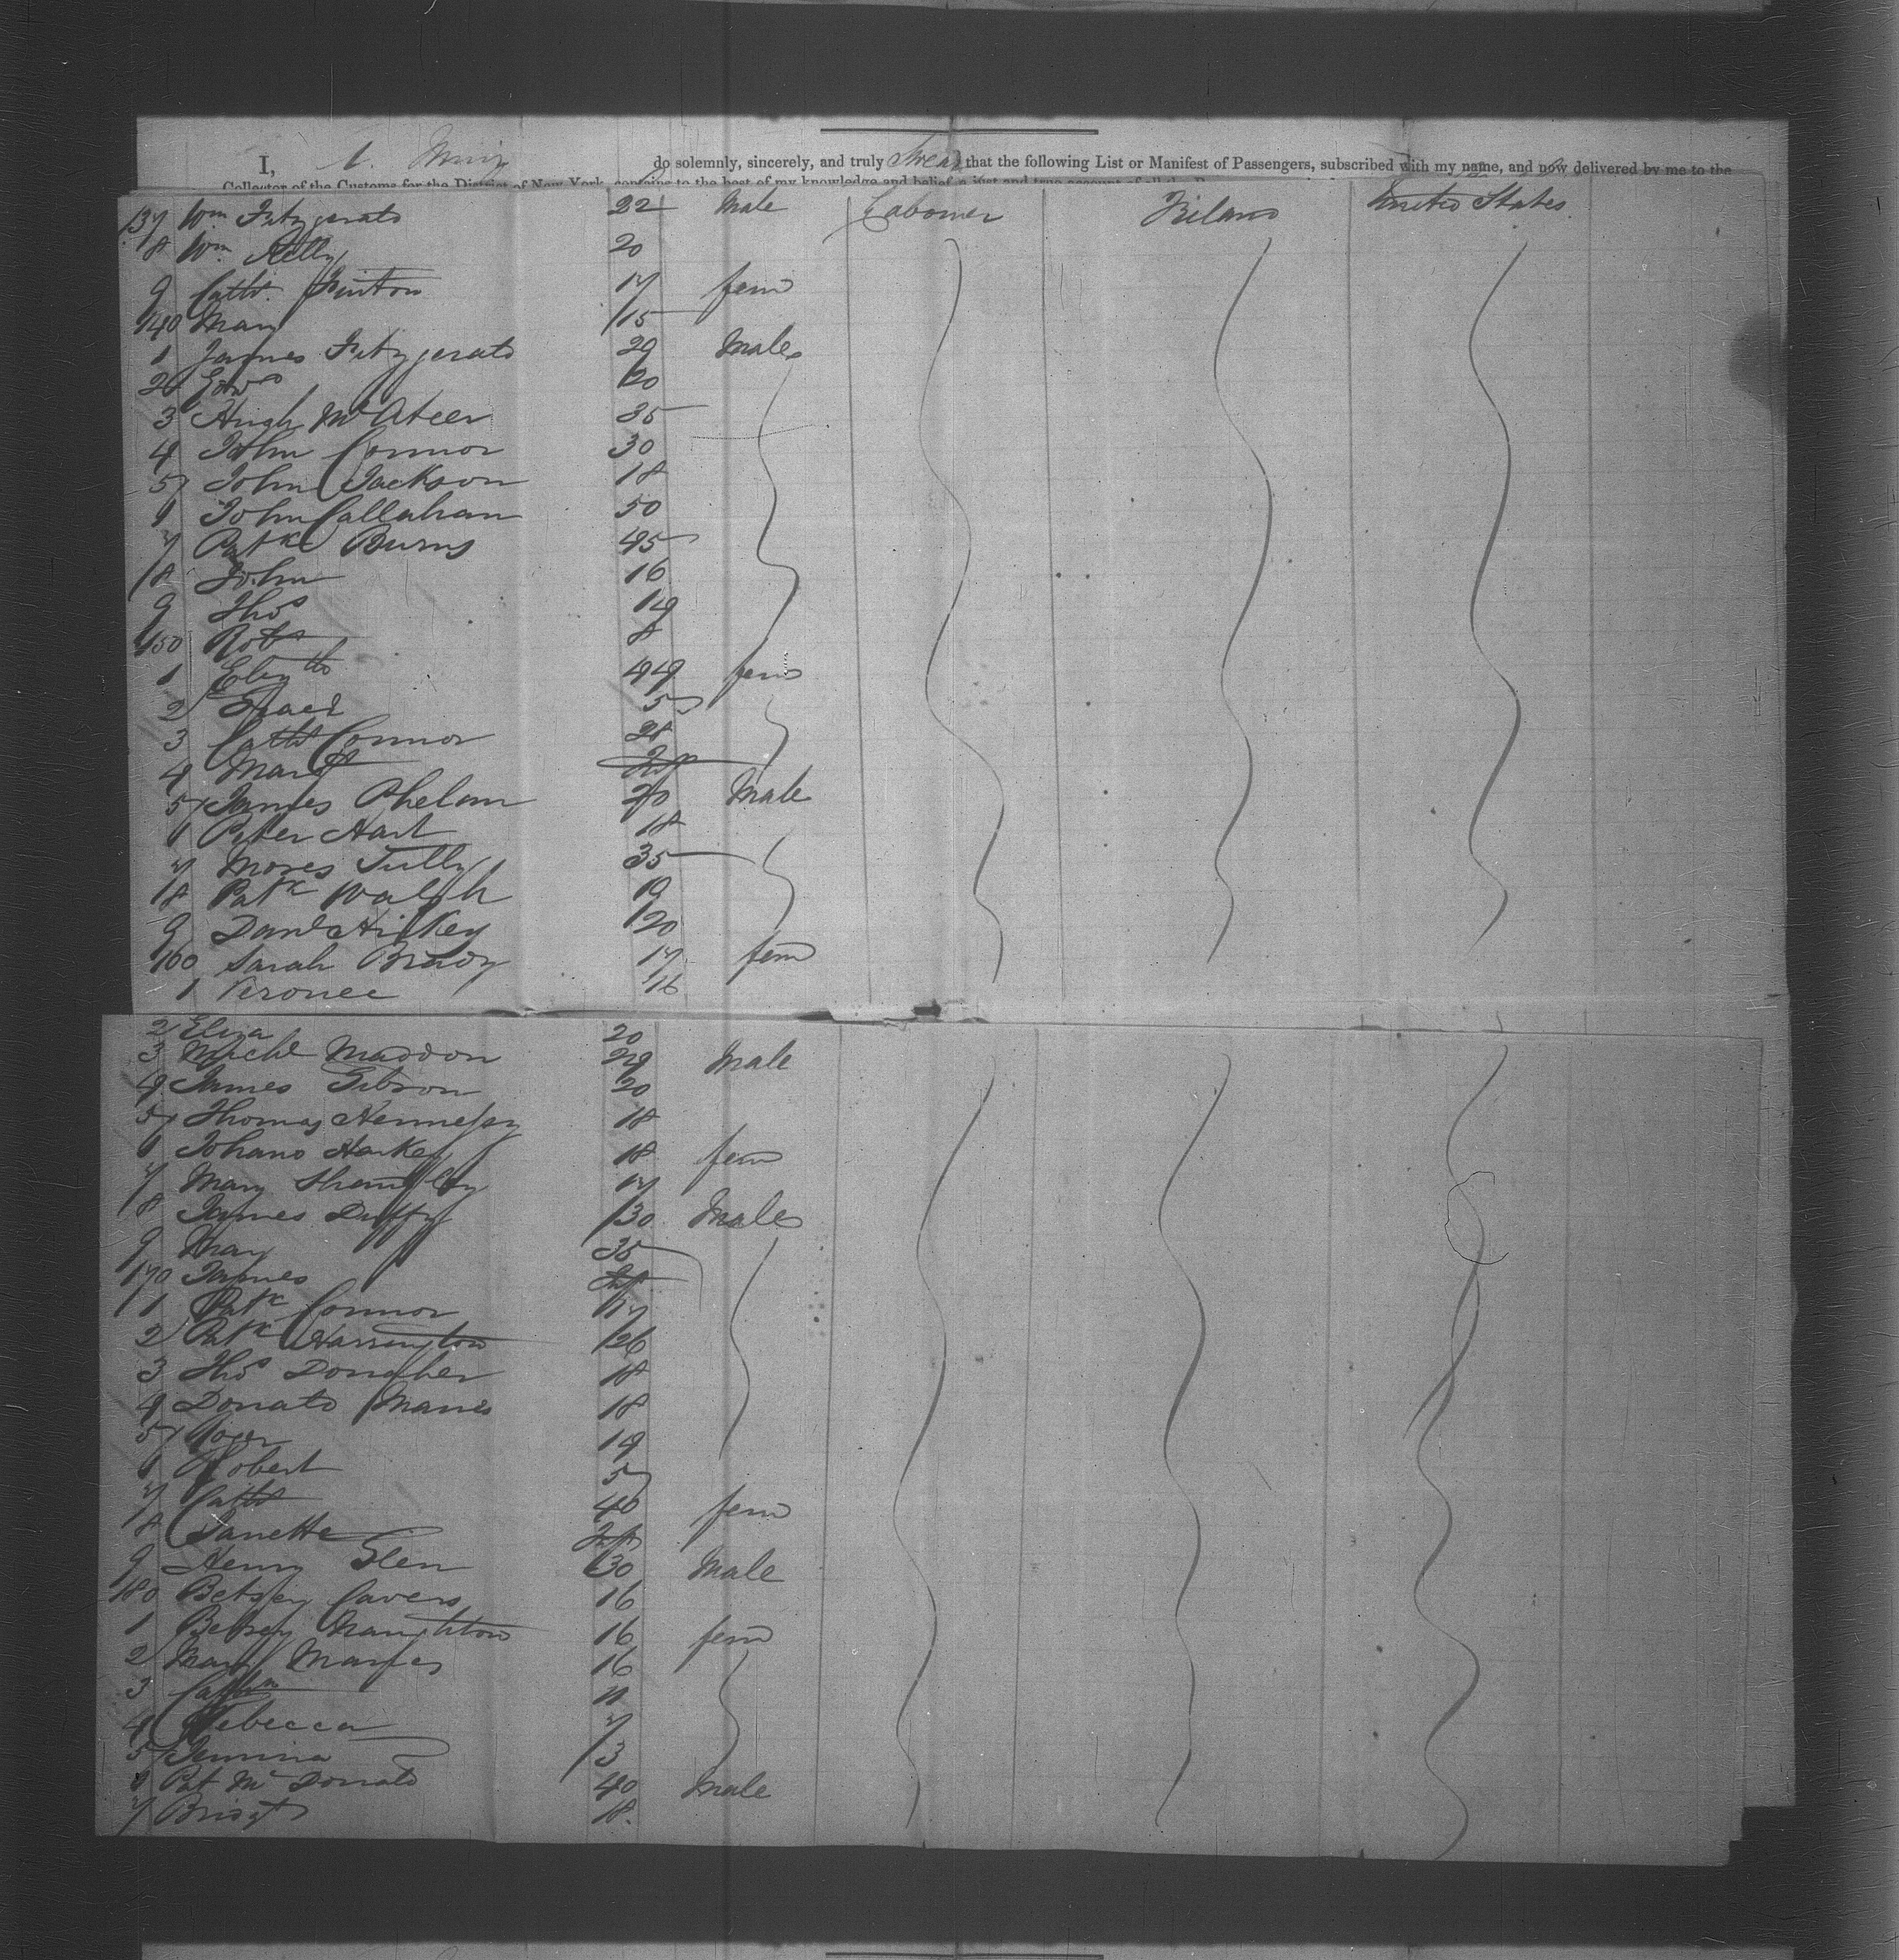 I, do solemnly, sincerely, and truly Swear that the following List or Manifest of Passengers, subscribed with my name, and now delivered by me to the
Collector of the Customs for the District of New York, contains to the best of my knowledge and belief a just and true account of all the
137 Wm Fitzgerald 22 Male Labourer Ireland United States
8 Wm Kelly 20
9 Cathe Finton 17 fem
140 Mary 15
1 James Fitzgerald 29 Male
2 Edwd 20
3 Hugh McAteer 35
4 John Connor 30
5 John Jackson 18
6 John Callahan 50
7 Patk Burns 45
8 John 16
9 Thos 14
150 Robt 8
1 Elizth 44 fem
2 Grace 5
3 Cathe Connor 28
4 Mary Inft
5 James Phelan 20 Male
6 Peter Hart 18
7 Moses Tully 35
8 Patk Walsh 19
9 Danl Hickey 20
160 Sarah Brady 17 fem
1 16
2 Eliza 20
3 Michl Maddon 24 Male
4 James Gibson 20
5 Thomas Hennessy 18
6 Johana Harkey 18 fem
7 Mary 17
8 James Duffy 30 Male
9 Mary 35
170 James Inft
1 Patk Connor 17
2 Patk Harrington 26
3 Thos Donagher 18
4 Donald 18
5 Roger 14
6 Robert 5
7 Cathe 40 fem
8 Janette Inft
9 Henry Glen 30 Male
180 Betsey Cavers 16
1 Betsey Naughton 16 fem
2 Mary 16
3 11
4 Rebecca 7
5 Jemima 3
6 Pat McDonald 40 Male
7 Bridgt 18